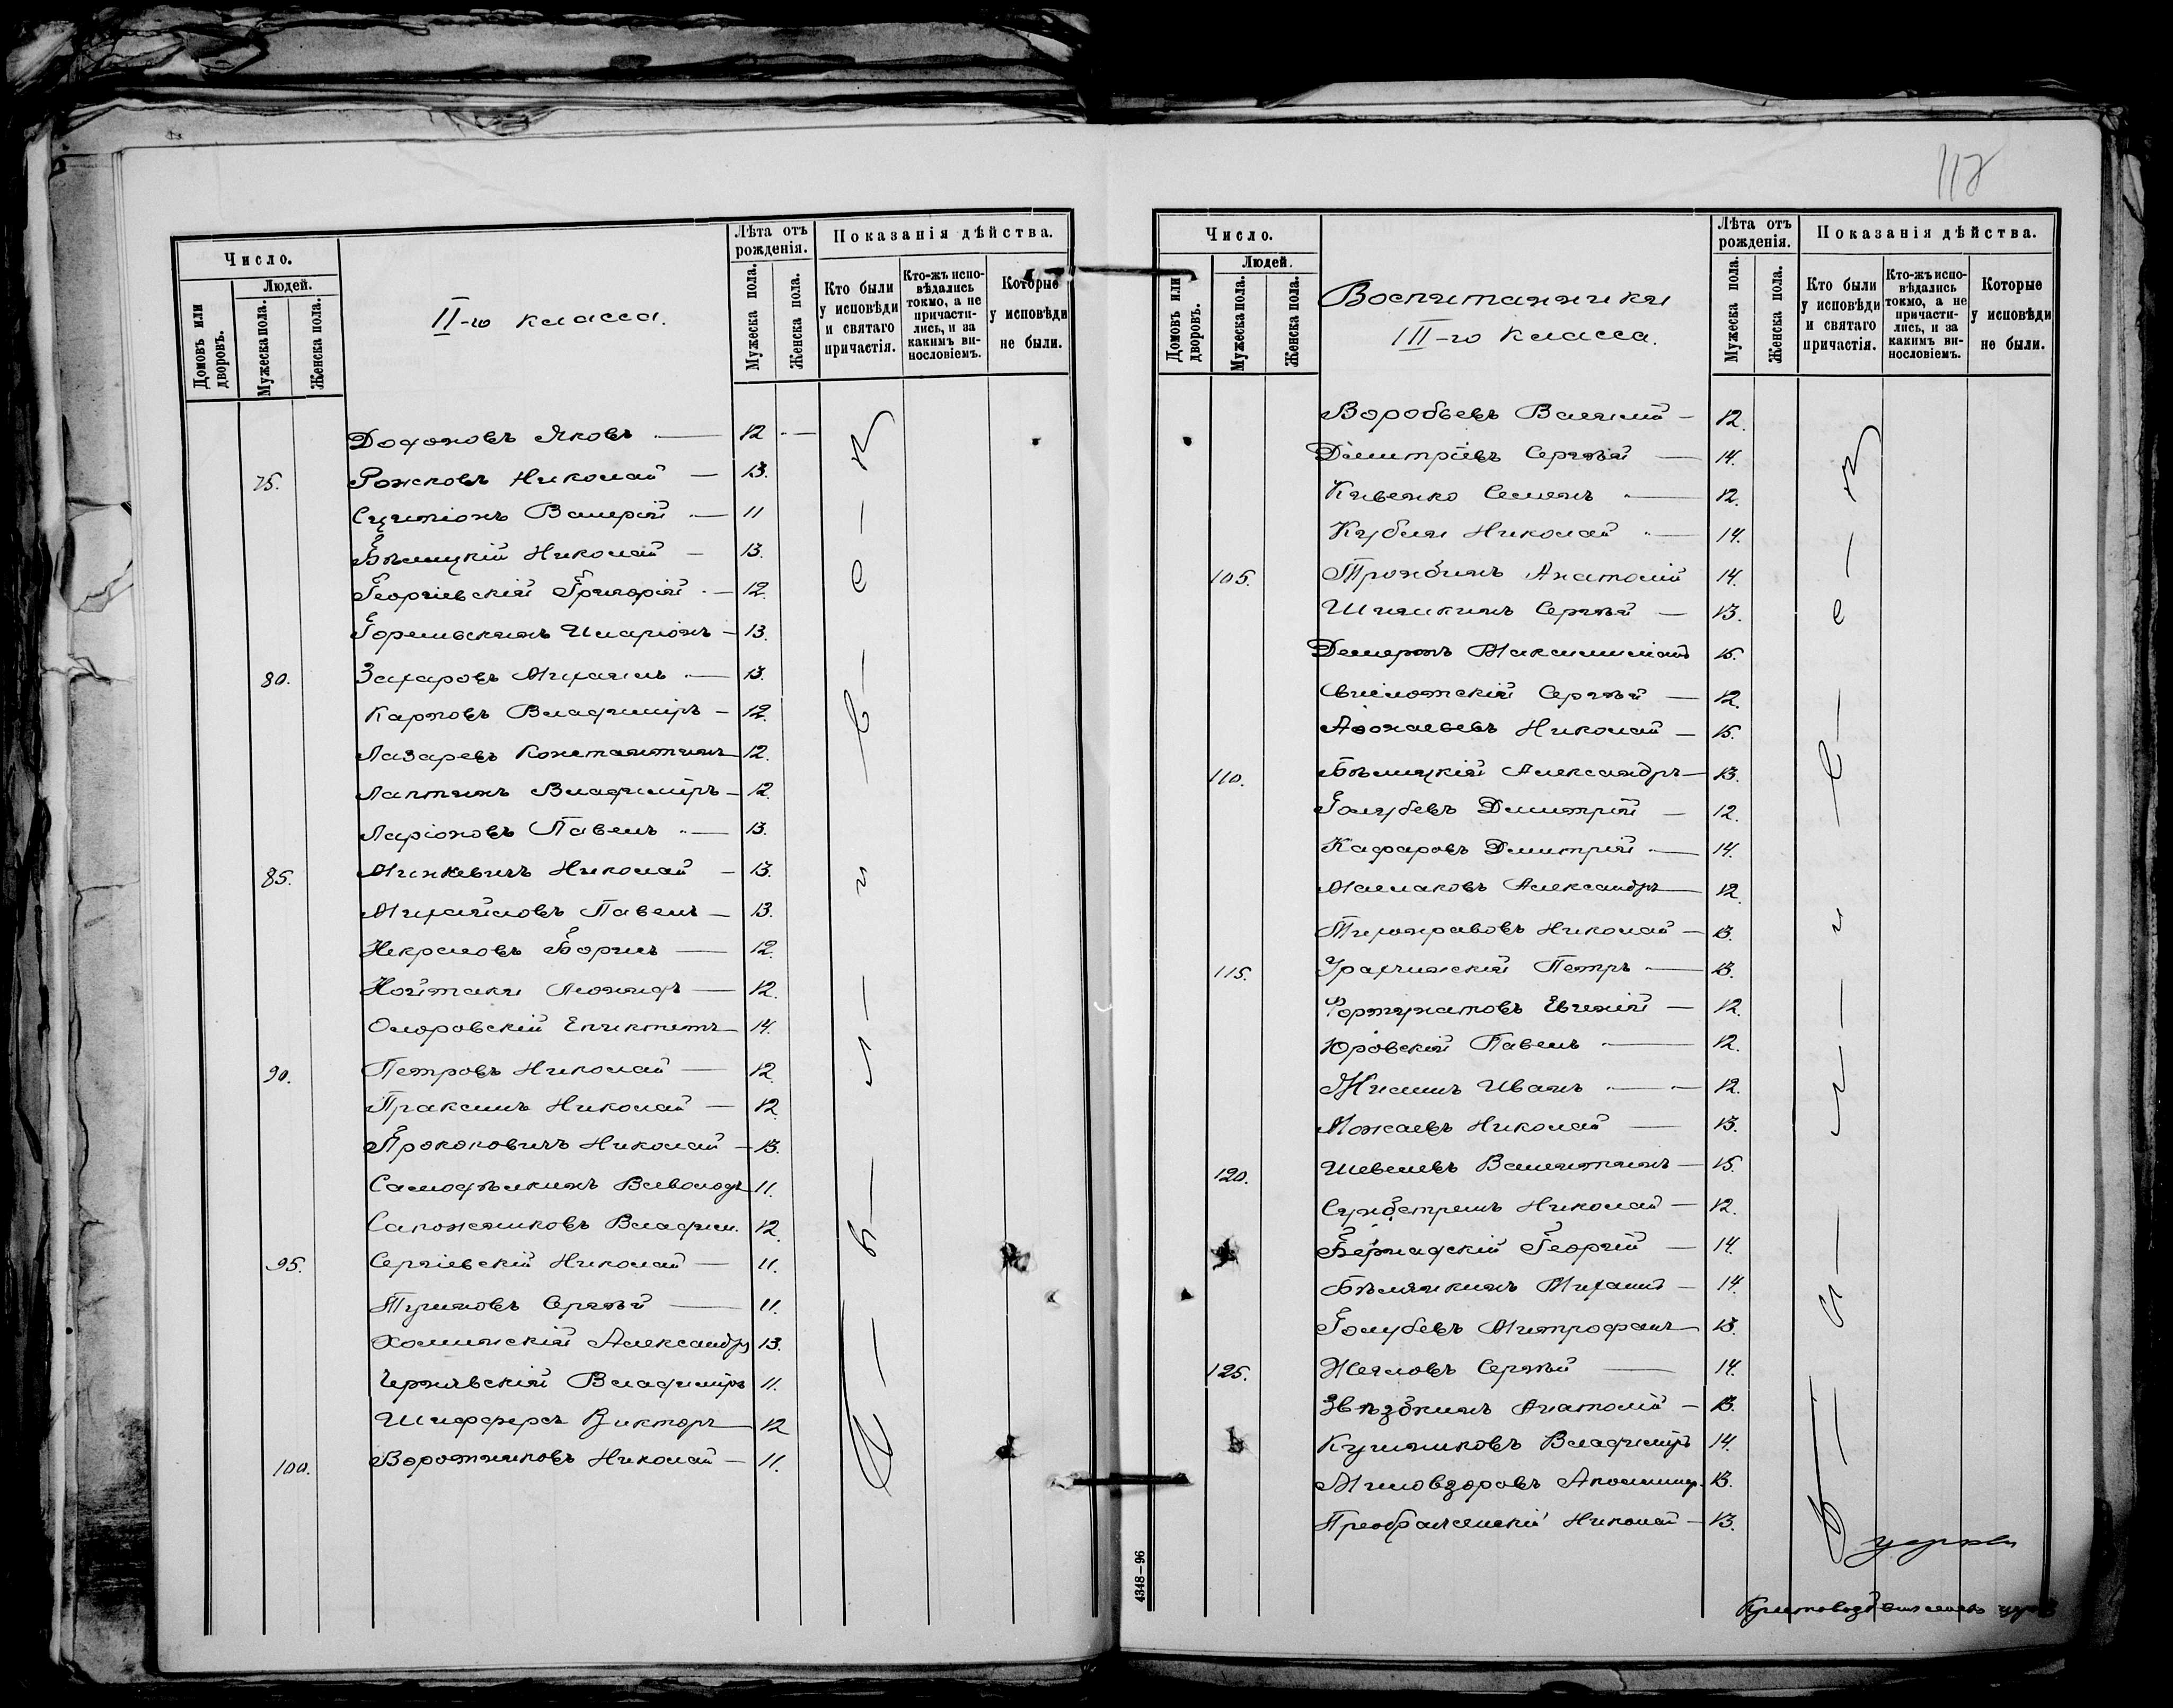 112
Число.
Лѣта отъ рожденія.
Показанія дѣйства.
Домовъ или дворовъ.
Людей.
Мужеска пола.
Женска пола.
II-го класса.
Мужеска пола.
Женска пола.
Кто были у исповѣди и святаго причастія.
Кто-жъ исповѣдались токмо, а не причастились, и за какимъ винословіемъ.
Которые у исповѣди не были.
Яковъ 12
75. Рожновъ Николай 13.
Сципіонъ Валерій 11
Бѣлицкій Николай 13.
Георгіевскій Григорій 12.
Иларіонъ 13.
80. Захаровъ Михаилъ 13.
Карповъ Владиміръ 12.
Лазаревъ Константинъ 12.
Лаптинъ Владиміръ 12.
Ларіоновъ Павелъ 13.
85. Минкевичъ Николай 13.
Михайловъ Павелъ 13.
Некрасовъ Борисъ 12.
Леонидъ 12.
Епиктетъ 14.
90. Петровъ Николай 12.
Праксинъ Николай 12.
Прокоповичъ Николай 13.
Самодѣлкинъ Всеволодъ 11.
Сапожниковъ Владим. 12.
95. Сергіевскій Николай 11.
Сергѣй 11.
Холминскій Александръ 13.
Чернявскій Владиміръ 11.
Шифферсъ Викторъ 12
100. Воротниковъ Николай 11.
Число.
Лѣта отъ рожденія.
Показанія дѣйства.
Домовъ или дворовъ.
Людей.
Мужеска пола.
Женска пола.
Воспитанники
III-го класса.
Мужеска пола.
Женска пола.
Кто были у исповѣди и святаго причастія.
Кто-жъ исповѣдались токмо, а не причастились, и за какимъ винословіемъ.
Которые у исповѣди не были.
Воробьевъ Василій 12.
Димитріевъ Сергѣй 14.
Кивенко Семенъ 12.
Николай 14.
105. Анатолій 14.
Шишкинъ Сергѣй 13.
Максимиліанъ 15.
Сергѣй 12.
Николай 15.
110. Бѣлицкій Александръ 13.
Голубевъ Димитрій 12.
Кафаровъ Димитрій 14.
Александръ 12.
Тихонравовъ Николай 13.
115. Петръ 13.
Фортунатовъ Евгеній 12.
Юровскій Павелъ 12.
Жилинъ Иванъ 12.
Можаевъ Николай 13.
120. Шевелевъ Валентинъ 15.
Сундстремъ Николай 12.
Бернадскій Георгій 14.
Бѣлянкинъ Михаилъ 14.
Голубевъ Митрофанъ 13.
125. Сергѣй 14.
Звѣздкинъ Анатолій 13.
Владиміръ 14.
Миловзоровъ Аполлинар. 13.
Преображенскій Николай 13.
церкви
4348—96